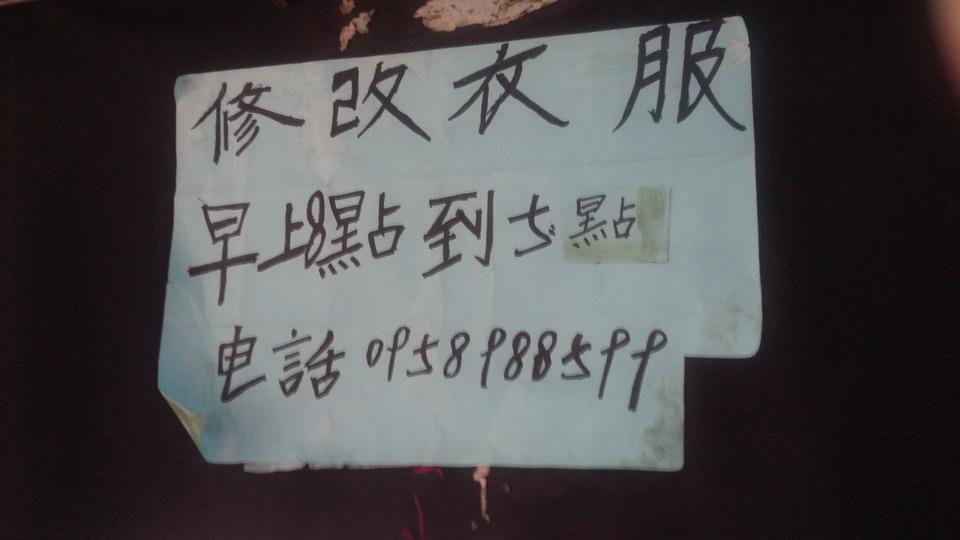 修改衣服
早上8點到 點
电話 0958988599